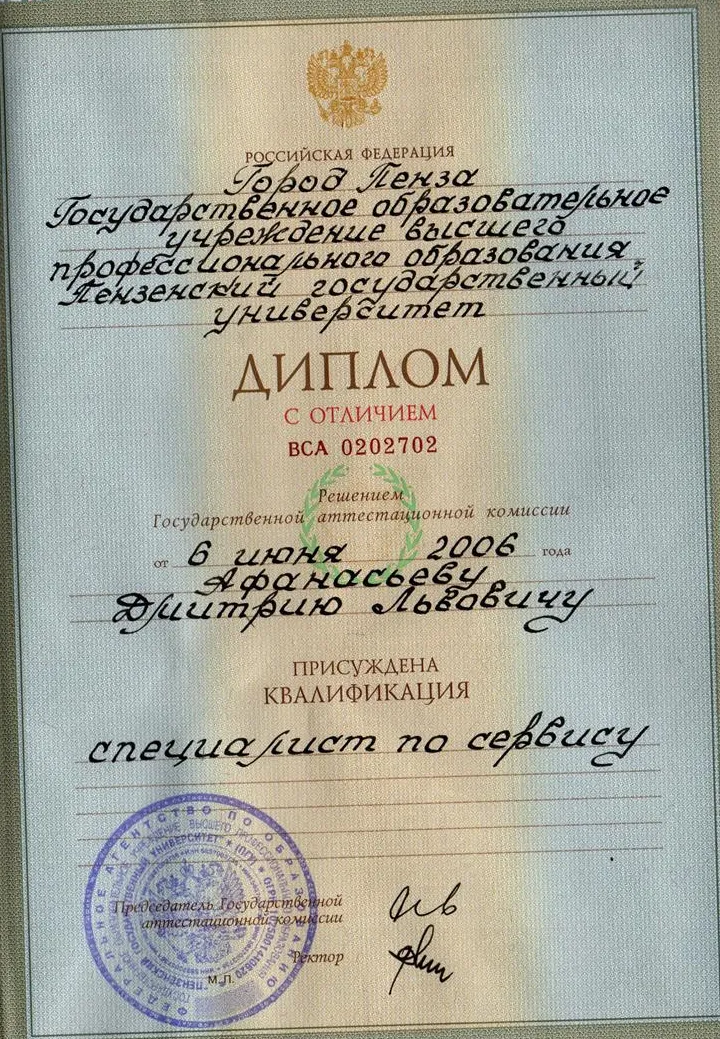 РОССИЙСКАЯ ФЕДЕРАЦИЯ
Город Пенза
Государственное образовательное
учреждение высшего
профессионального образования
Пензенский государственный
университет
ДИПЛОМ
С ОТЛИЧИЕМ
ВСА 0202702
Решением
Государственной аттестационной комиссии
от 6 июня 2006 года
Афанасьеву
Дмитрию Львовичу
ПРИСУЖДЕНА
КВАЛИФИКАЦИЯ
специалист по сервису
ФЕДЕРАЛЬНОЕ АГЕНТСТВО ПО ОБРАЗОВАНИЮ
Председатель Государственной
аттестационной комиссии
Ректор
М.П.